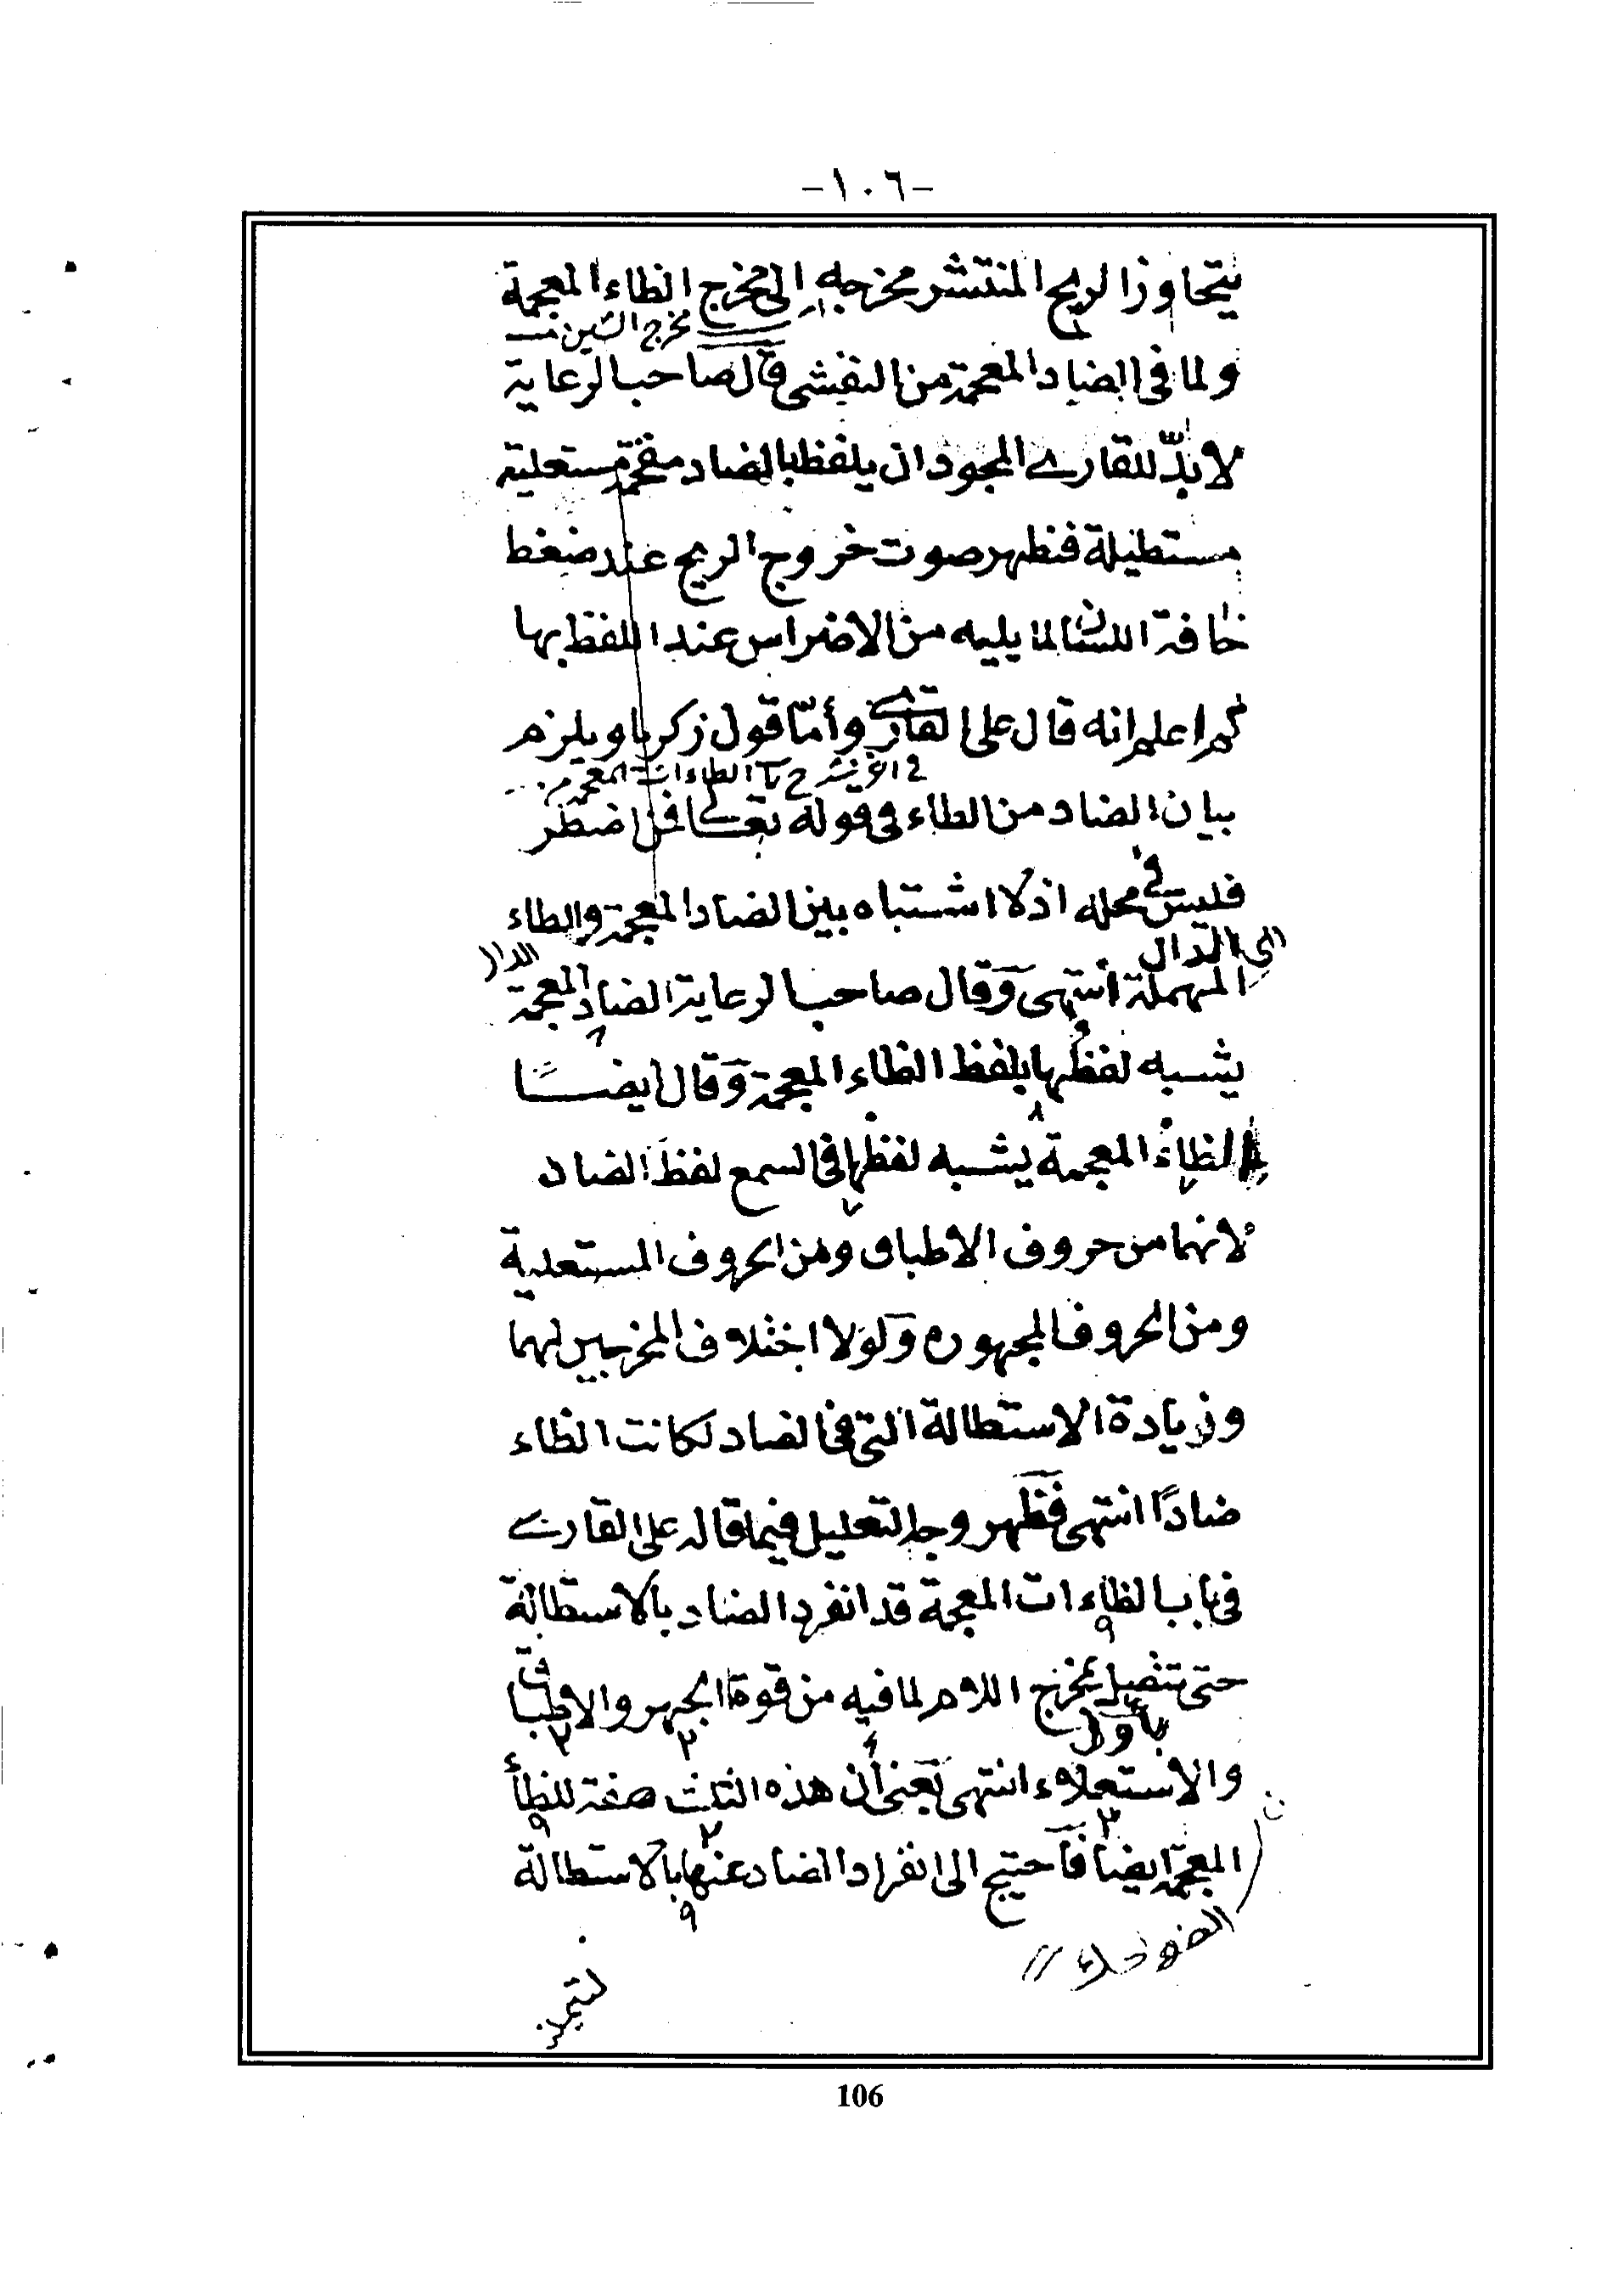 -١٠٦-
يتجاوز الريح المنتشر مخرجه إلى مخرج الظاء المعجمة
مخرج الشين
ولما في الضاد المعجمة من التفشي قال صاحب الرعاية
لا بدّ للقارئ المجود ان يلفظ بالضاد مفخمة مستعلية
مستطيلة فتظهر صوت خروج الريح عند ضغط
حافة اللسان لما يليه من الاضراس عند اللفظ بها
ثم اعلم انه قال على القارئ وأمّا قول زكريا ويلزم
بيان الضاد من الطاء في قوله تعالى فمن اضطر
فليس في محله اذ لا اشتباه بين الضاد المعجمة والطاء
المهملة انتهى وقال صاحب الرعاية الضاد المعجمة
يشبه لفظها بلفظ الظاء المعجمة وقال ايضًا
الظاء المعجمة يشبه لفظها في السمع لفظ الضاد
لانهما من حروف الاطباق ومن الحروف المستعلية
ومن الحروف المجهورة ولولا اختلاف المخرجين لهما
وزيادة الاستطالة التي في الضاد لكانت الظاء
ضادًا انتهى فظهر وجه التعليل فيما قاله على القارئ
في باب الظاءات المعجمة قد انفرد الضاد بالاستطالة
حتى تتصل بمخرج اللام لما فيه من قوة الجهر والاطباق
والاستعلاء انتهى يعني أن هذه الثلث صفة للظأ
المعجمة ايضا فاحتيج الى انفراد الضاد عنها بالاستطالة
لتميز
106